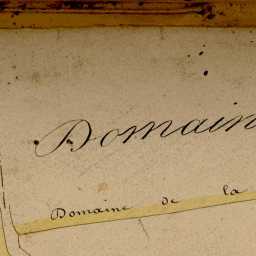 Domain
Domaine de la